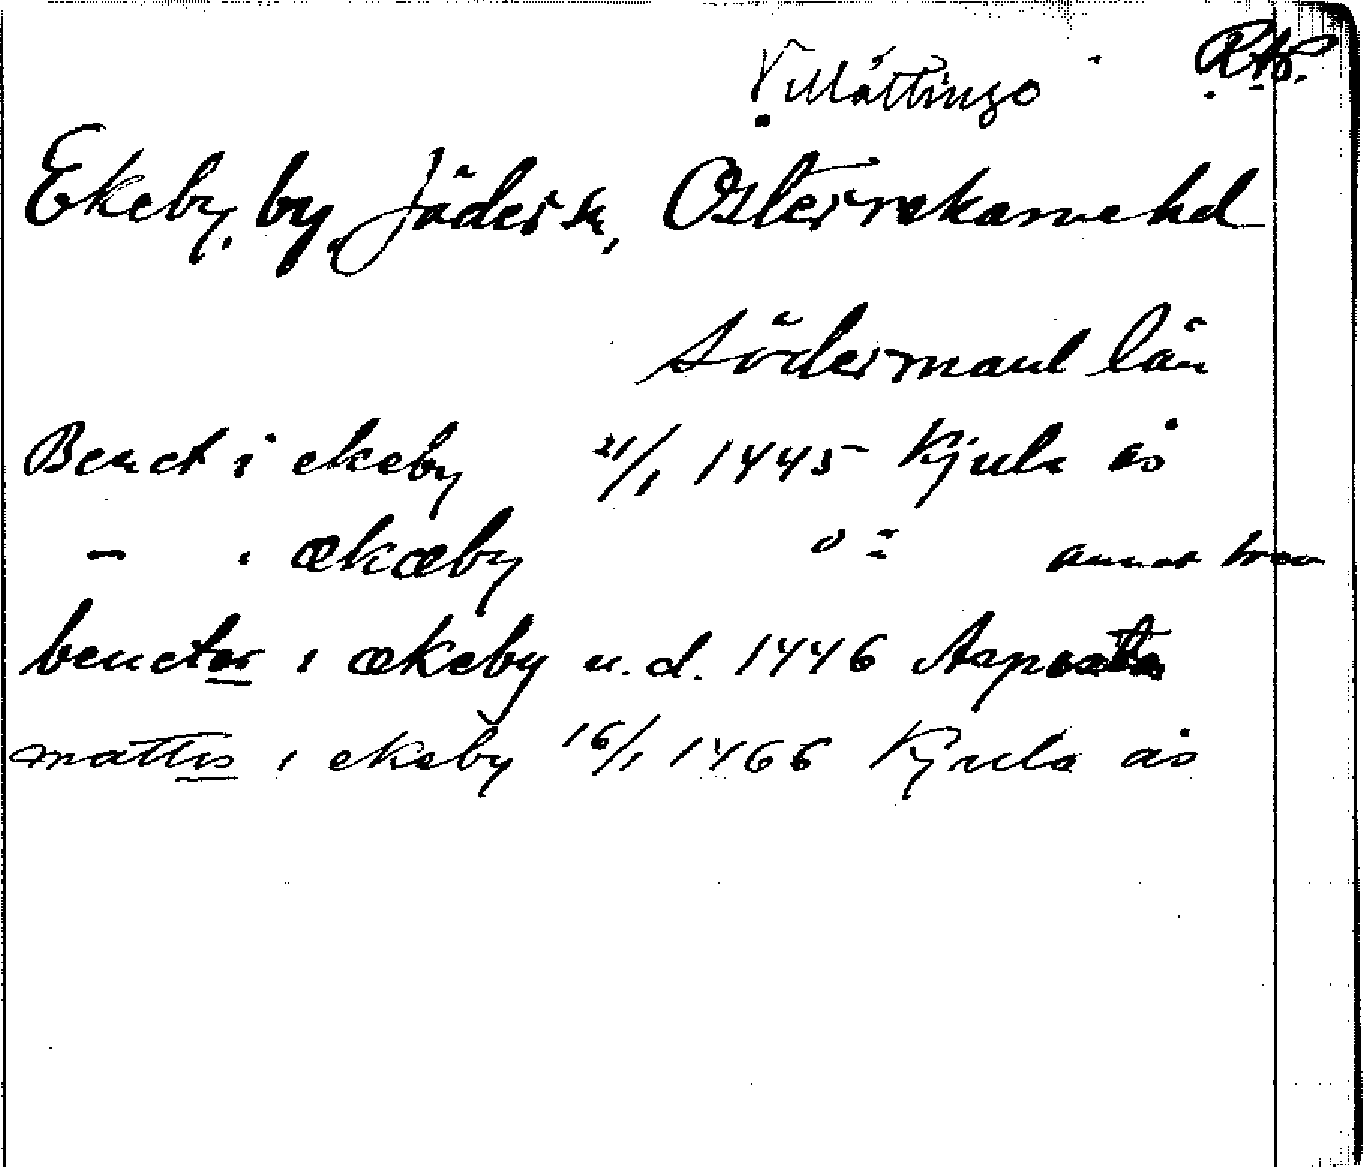 Villåttinge
Ekeby, by, Jäder sn, Österrekarne hd
Södermanl län
Benct i ekeby 21/1 1445 Kjula ås
— i ækæby annat brev
benctær i ækeby u.d. 1446 Aspa
mattis i ekeby 16/1 1466 Kjula ås